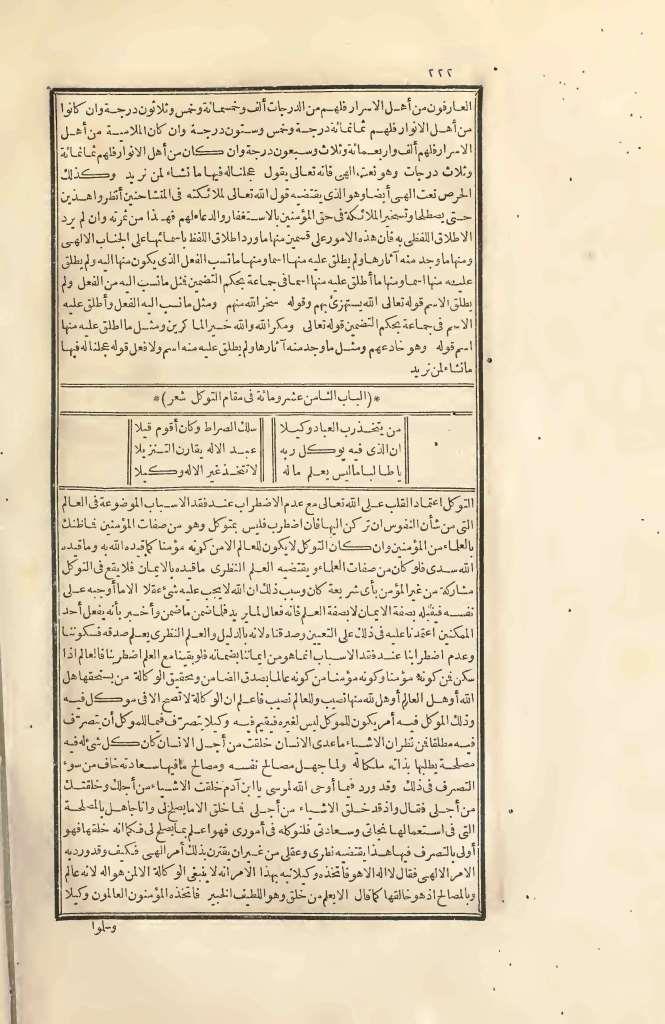 ٢٢٢
العارفون من أهل الاسرار فلهم من الدرجات ألف وخمسمائة وخمس وثلاثون درجة وان كانوا
من أهل الانوار فلهم ثمانمائة درجة وخمس وستون درجة وان كان الملامية من أهل
الاسرار فلهم ألف واربعمائة وثلاث وسبعون درجة وان كان من أهل الانوار فلهم ثمانمائة
وثلاث درجات وهو نعت الهى فانه تعالى يقول عجلنا له فيها ما نشاء لمن نريد وكذلك
الحرص نعت الهى أيضا وهو الذى يقتضيه قول الله تعالى لملائكته فى المتشاحنين أنظروا هذين
حتى يصطلحا وتسخير الملائكة فى حق المؤمنين بالاستغفار والدعاء لهم فهذا من ثمرته وان لم يرد
الاطلاق اللفظى به فان هذه الامور على قسمين منها ما ورد اطلاق اللفظ باسمائها على الجناب الالهى
ومنها ما وجد منه آثارها ولم يطلق عليه منها اسما ومنها ما نسب الفعل الذى يكون منها اليه ولم يطلق
عليه منها اسما ومنها ما أطلق عليه منها اسما فى جماعة بحكم التضمين فمثل ما نسب اليه من الفعل ولم
يطلق الاسم قوله تعالى الله يستهزئ بهم وقوله سخر الله منهم ومثل ما نسب اليه الفعل وأطلق عليه
الاسم فى جماعة بحكم التضمين قوله تعالى ومكر الله والله خير الماكرين ومثل ما اطلق عليه منها
اسم قوله وهو خادعهم ومثل ما وجد منه آثارها ولم يطلق عليه منه اسم ولا فعل قوله عجلنا له فيها
ما نشاء لمن نريد
*(الباب الثامن عشر ومائة فى مقام التوكل شعر)*
من يتخذ رب العباد وكيلا سلك الصراط وكان أقوم قيلا
ان الذى فيه يوكل ربه عبد الاله يقارن التنزيلا
يا طالبا ما ليس يعلم ماله لا تتخذ غير الاله وكيلا
التوكل اعتماد القلب على الله تعالى مع عدم الاضطراب عند فقد الاسباب الموضوعة فى العالم
التى من شأن النفوس ان تركن اليها فان اضطرب فليس بمتوكل وهو من صفات المؤمنين فما ظنك
بالعلماء من المؤمنين وان كان التوكل لا يكون للعالم الا من كونه مؤمنا كما قيده الله به وما قيده
الله سدى فلو كان من صفات العلماء ويقتضيه العلم النظرى ما قيده بالايمان فلا يقع فى التوكل
مشاركة من غير المؤمن بأى شريعة كان وسبب ذلك ان الله لا يجب عليه شئ عقلا الا ما أوجبه على
نفسه فيقبله بصفة الايمان لا بصفة العلم فانه فعال لما يريد فلما ضمن ما ضمن وأخبر بأنه يفعل أحد
الممكنين اعتمدنا عليه فى ذلك على التعيين وصدقناه لانه بالدليل والعلم النظرى يعلم صدقه فسكوننا
وعدم اضطرابنا عند فقد الاسباب انما هو من ايماننا بضمانه فلو بقينا مع العلم اضطربنا فالعالم اذا
سكن فمن كونه مؤمنا وكونه مؤمنا من كونه عالما بصدق الضامن وتحقيق الوكالة من يستحقها هل
الله أو هل العالم أو هل لله منها نصيب وللعالم نصيب فاعلم ان الوكالة لا تصح الا فى موكل فيه
وذلك الموكل فيه أمر يكون للموكل ليس لغيره فيقيم فيه وكيلا يتصرف فيما للموكل أن يتصرف
فيه مطلقا فمن نظر ان الاشياء ما عدى الانسان خلقت من أجل الانسان كان كل شئ له فيه
مصلحة يطلبها بذاته ملكا له ولما جهل مصالح نفسه ومصالح ما فيها سعادته خاف من سوء
التصرف فى ذلك وقد ورد فيما أوحى الله لموسى يا ابن آدم خلقت الاشياء من أجلك وخلقتك
من أجلى فقال واذ قد خلق الاشياء من أجلى فما خلق الا ما يصلح لى وانا جاهل بالمصلحة
التى فى استعمالها نجاتى وسعادتى فلنوكله فى أمورى فهو اعلم بما يصلح لى فكما انه خلقها فهو
أولى بالتصرف فيها هذا يقتضيه نظرى وعقلى من غير ان يقترن بذلك أمر الهى فكيف وقد ورد به
الامر الالهى فقال لا اله الا هو فاتخذه وكيلا نبه بهذا الامر انه لا ينبغى الوكالة الا لمن هو اله لانه عالم
بالمصالح اذ هو خالقها كما قال الا يعلم من خلق وهو اللطيف الخبير فاتخذه المؤمنون العالمون وكيلا
وسلوا